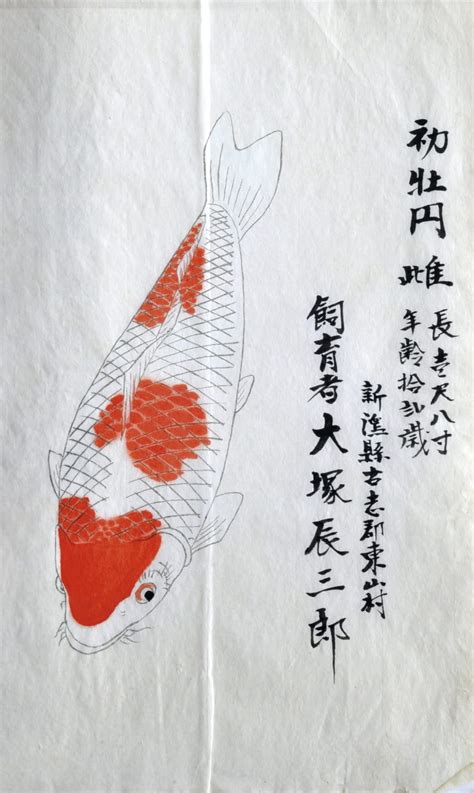 初壮円　雌
長壱尺八寸
年齢拾弐歳
新潟縣古志郡東山村
飼育者大塚辰三郎